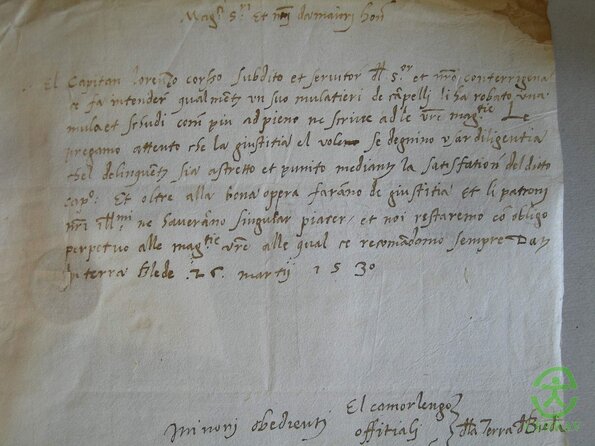 Mag.ci S.ri et n.ri da maiori hon.
El Capitan lorenzo corso subdito et servitor dll s.or et n.ro conterrigena
ce fa intender qualment un suo mulatieri de Capelli li ha robato una
mula et schudi com piu ad pieno ne scrive ad le v.re mag.tie Le
pregamo attento che la giustitia el vole se degnino usar diligentia
chel delinquent sia astretto et punito mediant la satisfation del ditto
cap.o Et oltre alla bona opera farano de giustitia et li patroni
n.ri ill.mi ne haverano singular piacer, et noi restaremo cō obligo
perpetuo alle mag.tie v.re alle qual ce recomādamo sempre Dat
In terra Blede 26 martij 1530
Minori obedienti
El camorlengo
offitiali
dlla Terra d Bieda